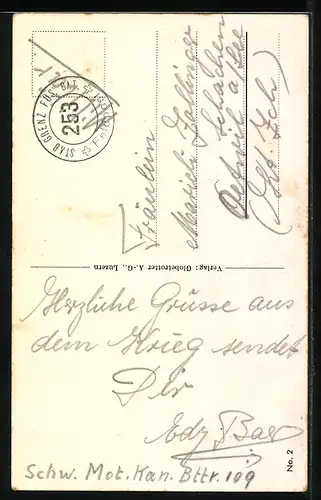 STAB GRENZ FÜS. BAT.
253
Feldpost
Fräulein
Marieli Zollinger
Schachen
Oetwil a/See
(Kt. Zch)
Verlag: Globetrotter A.-G., Luzern
Herzliche Grüsse aus
dem Krieg sendet
Dir
Edy Baer
Schw. Mot. Kan. Bttr. 109
No. 2